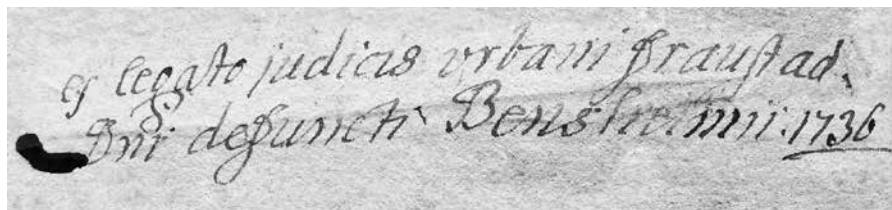 ex legato judicis urbani Fraustad.
Dni defuncti Bensheimii. 1736